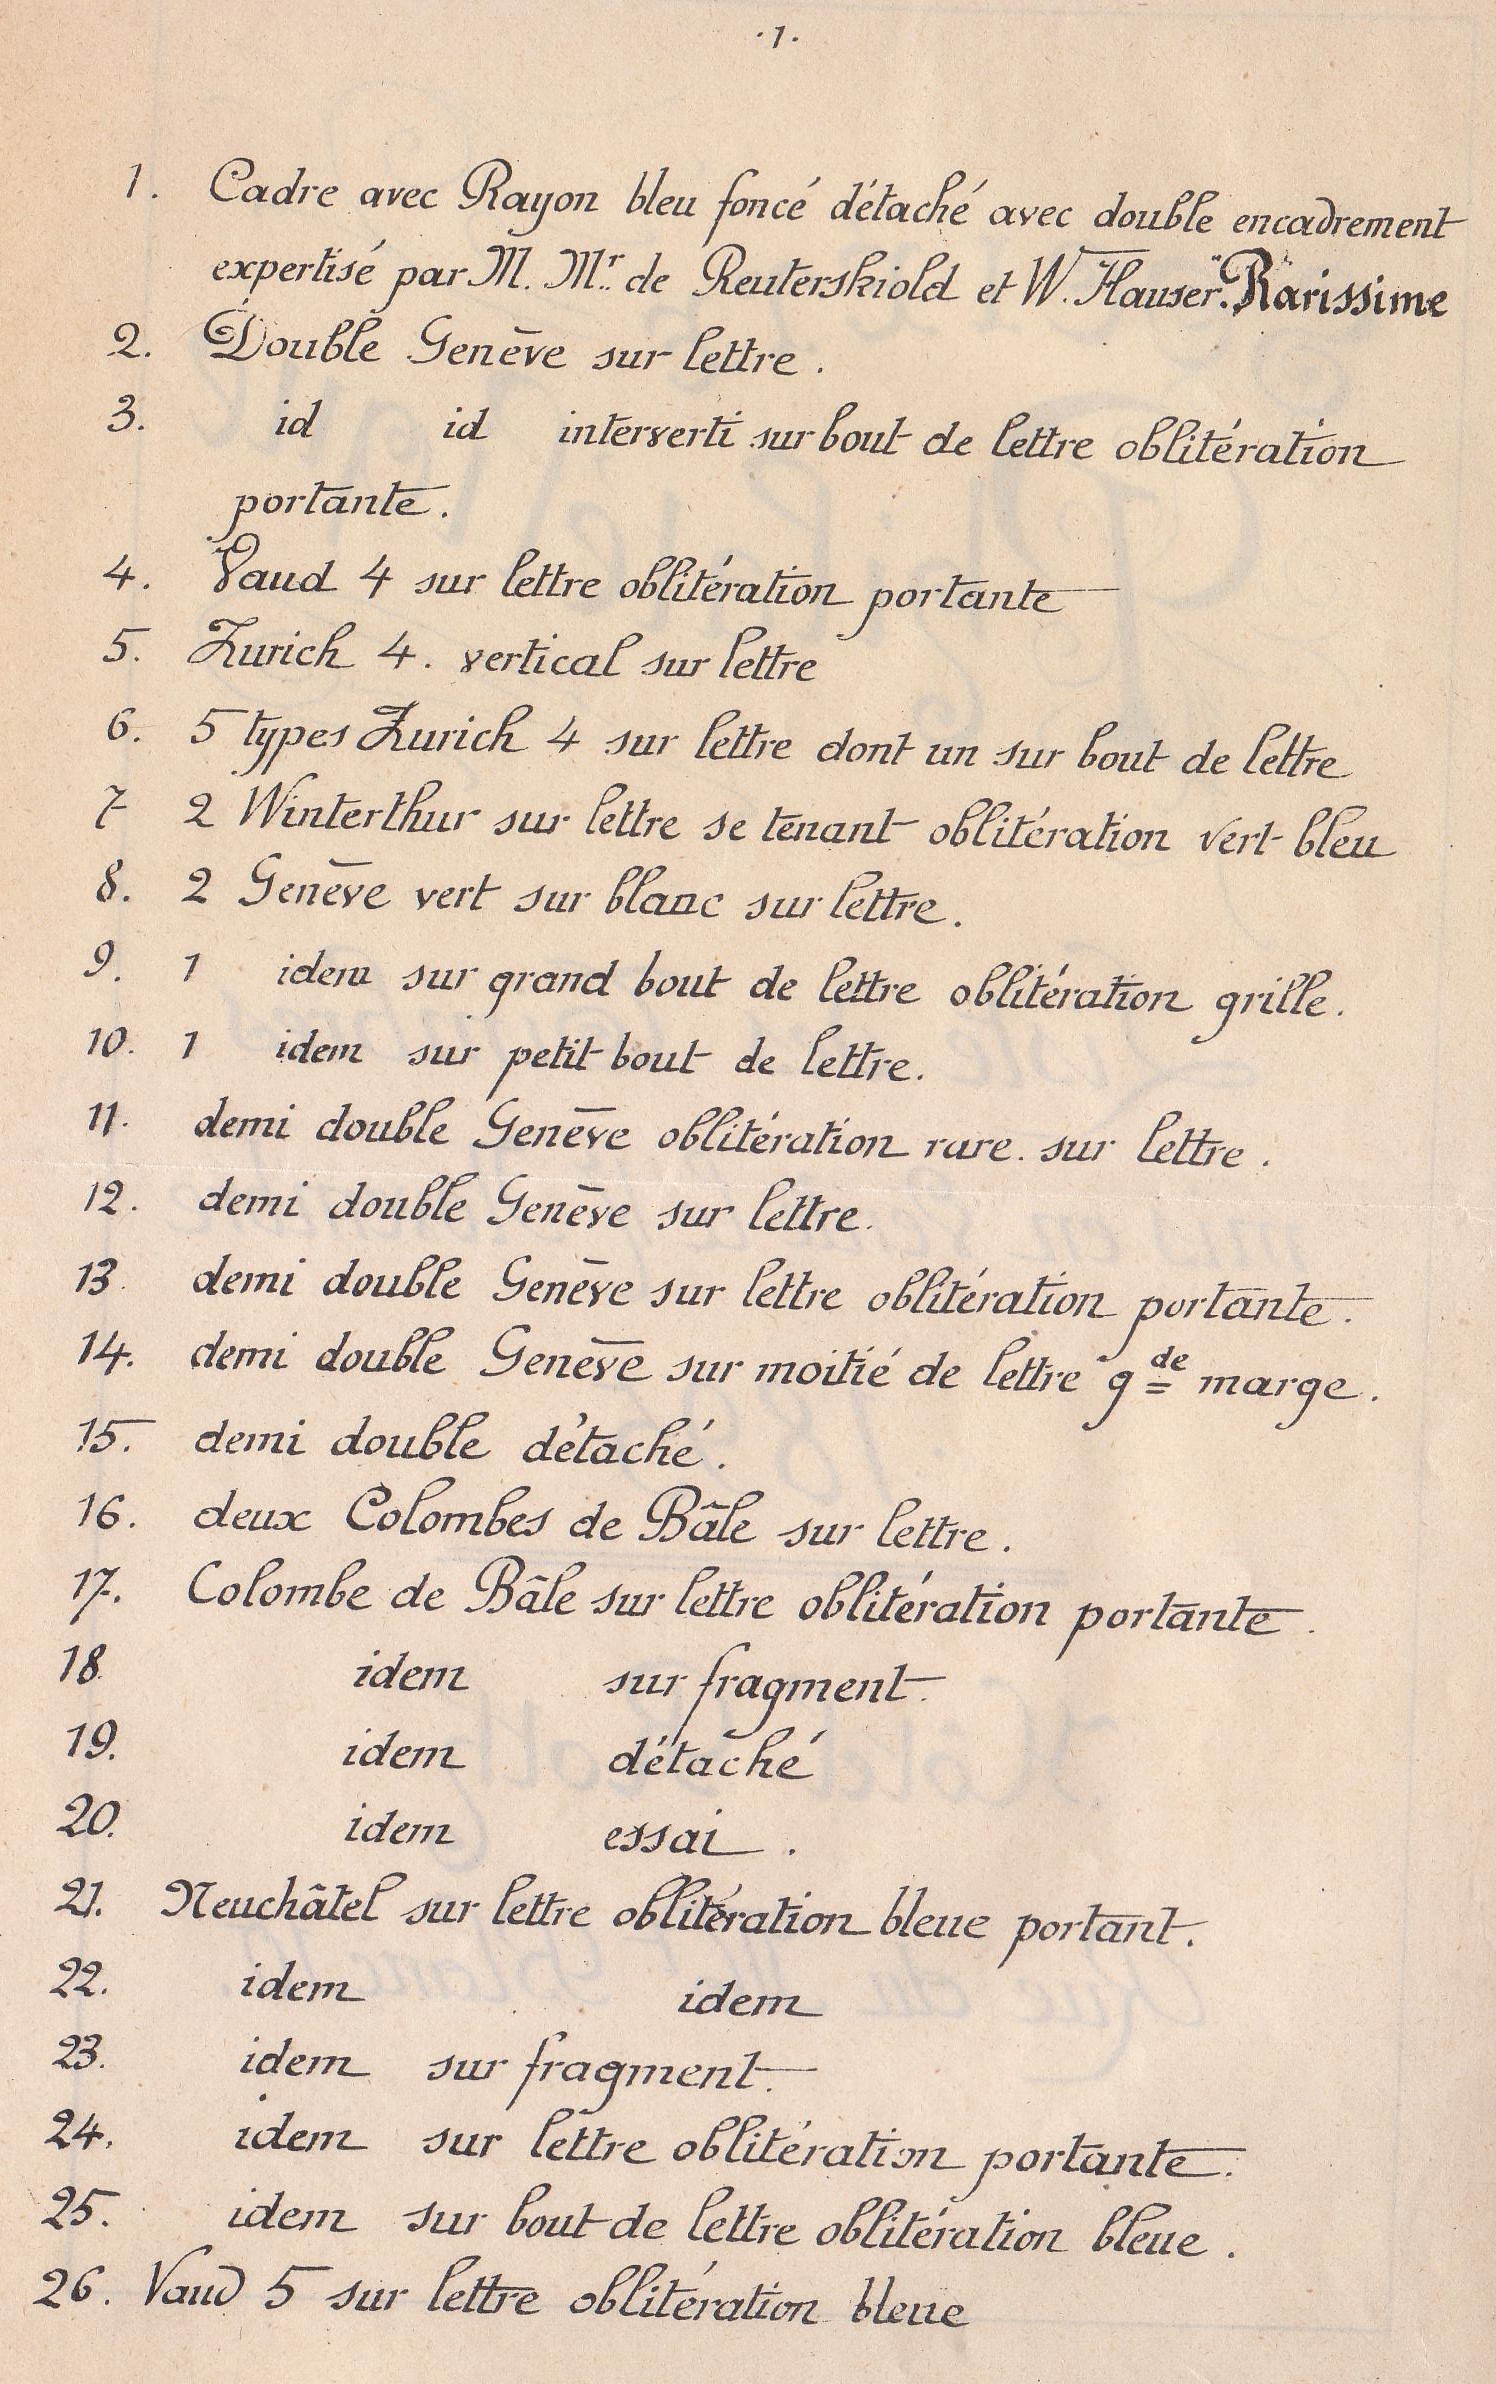 .1.
1. Cadre avec Rayon bleu foncé détaché avec double encadrement
expertisé par M. Mr. de Reuterskiold et W. Hauser. "Rarissime
2. Double Genève sur lettre.
3. id id interverti sur bout de lettre oblitération
portante.
4. Vaud 4 sur lettre oblitération portante
5. Zurich 4. vertical sur lettre
6. 5 types Zurich 4 sur lettre dont un sur bout de lettre
7 2 Winterthur sur lettre se tenant oblitération vert bleu
8. 2 Genève vert sur blanc sur lettre.
9. 1 idem sur grand bout de lettre oblitération grille.
10. 1 idem sur petit bout de lettre.
11. demi double Genève oblitération rare. sur lettre.
12. demi double Genève sur lettre.
13. demi double Genève sur lettre oblitération portante.
14. demi double Genève sur moitié de lettre gde marge.
15. demi double détaché.
16. deux Colombes de Bâle sur lettre.
17. Colombe de Bâle sur lettre oblitération portante.
18. idem sur fragment.
19. idem détaché
20. idem essai.
21. Neuchâtel sur lettre oblitération bleue portant.
22. idem idem
23. idem sur fragment.
24. idem sur lettre oblitération portante.
25. idem sur bout de lettre oblitération bleue.
26. Vaud 5 sur lettre oblitération bleue